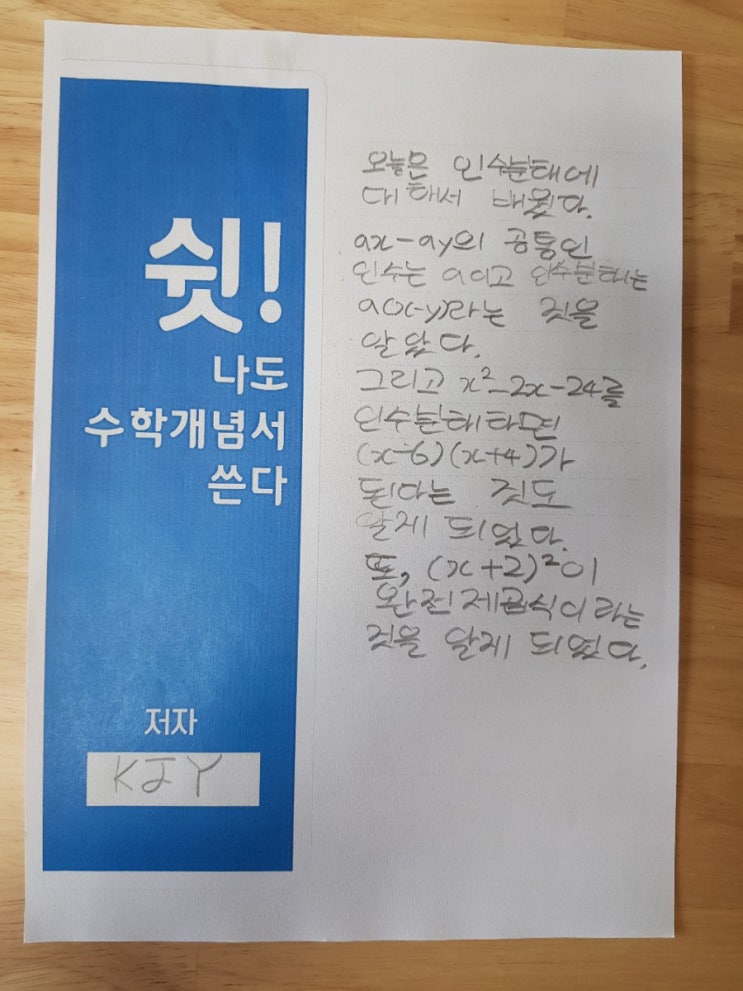 쉿!
나도
수학개념서
쓴다
저자
KJY
오늘은 인수분해에
대해서 배웠다.
ax-ay의 공통인
인수는 a이고 인수분해는
a(x-y)라는 것을
알았다.
그리고 x²-2x-24를
인수분해하면
(x-6)(x+4)가
된다는 것도
알게 되었다.
또, (x+2)²이
완전제곱식이라는
것을 알게 되었다.